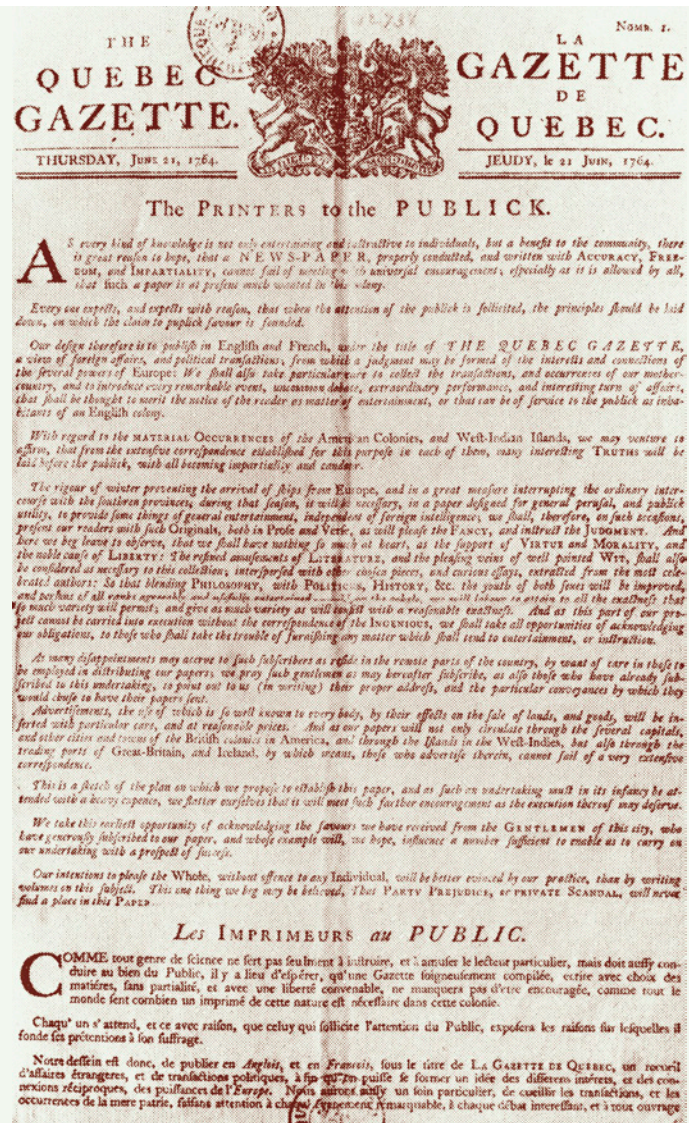 Nomb. 1.
THE
QUEBEC
GAZETTE.
LA
GAZETTE
DE
QUEBEC.
THURSDAY, June 21, 1764.
JEUDY, le 21 Juin, 1764.
The PRINTERS to the PUBLICK.
AS every kind of knowledge is not only entertaining and instructive to individuals, but a benefit to the community, there
is great reason to hope, that a NEWS-PAPER, properly conducted, and written with ACCURACY, FREE-
DOM, and IMPARTIALITY, cannot fail of meeting with universal encouragement; especially as it is allowed by all,
that such a paper is at present much wanted in this colony.
Every one expects, and expects with reason, that when the attention of the publick is sollicited, the principles should be laid
down, on which the claim to puplick favour is founded.
Our design therefore is to publish in English and French, under the title of THE QUEBEC GAZETTE,
a view of foreign affairs, and political transactions, from which a judgment may be formed of the interests and connections of
the several powers of Europe: We shall also take particular care to collect the transactions, and occurrences of our mother-
country, and to introduce every remarkable event, uncommon debate, extraordinary performance, and interesting turn of affairs,
that shall be thought to merit the notice of the reader as matter of entertainment, or that can be of service to the publick as inha-
bitants of an English colony.
With regard to the MATERIAL OCCURRENCES of the American Colonies, and West-Indian Islands, we may venture to
affirm, that from the extensive correspondence established for this purpose in each of them, many interesting TRUTHS will be
laid before the publick, with all becoming impartiality and candour.
The rigour of winter preventing the arrival of ships from Europe, and in a great measure interrupting the ordinary inter-
course with the southren provinces, during that season, it will be necessary, in a paper designed for general perusal, and publick
utility, to provide some things of general entertainment, independent of foreign intelligence; we shall, therefore, on such occasions,
present our readers with such Originals, both in Prose and Verse, as will please the FANCY, and instruct the JUDGMENT. And
here we beg leave to observe, that we shall have nothing so much at heart, as the support of VIRTUE and MORALITY, and
the noble cause of LIBERTY: The refined amusements of LITERATURE, and the pleasing veins of well pointed WIT, shall also
be considered as necessary to this collection; interspersed with other chosen pieces, and curious essays, extracted from the most cele-
brated authors: So that blending PHILOSOPHY, with POLITICKS, HISTORY, &c. the youth of both sexes will be improved,
and persons of all ranks agreeably and usefully entertained
so much variety will permit; and give as much variety as will consist with a reasonable exactness. And as this part of our pro-
ject cannot be carried into execution without the correspondence of the INGENIOUS, we shall take all opportunities of acknowledging
our obligations, to those who shall take the trouble of furnishing any matter which shall tend to entertainment, or instruction.
As many disappointments may accrue to such subscribers as reside in the remote parts of the country, by want of care in those to
be employed in distributing our papers; we pray such gentlemen as may hereafter subscribe, as also those who have already sub-
scribed to this undertaking, to point out to us (in writing) their proper address, and the particular conveyances by which they
would chuse to have their papers sent.
Advertisements, the use of which is so well known to every body, by their effects on the sale of lands, and goods, will be in-
serted with particular care, and at reasonable prices. And as our papers will not only circulate through the several capitals,
and other cities and towns of the British colonies in America, and through the Islands in the West-Indies, but also through the
trading ports of Great-Britain, and Ireland, by which means, those who advertise therein, cannot fail of a very extensive
correspondence.
This is a sketch of the plan on which we propose to establish this paper, and as such an undertaking must in its infancy be at-
tended with a heavy expence, we flatter ourselves that is will meet such farther encouragement as the execution thereof may deserve.
We take this earliest opportunity of acknowledging the favours we have received from the GENTLEMEN of this city, who
have generously subscribed to our paper, and whose example will, we hope, influence a number sufficient to enable us to carry on
our undertaking with a prospect of success.
Our intentions to please the Whole, without offence to any Individual, will be better evinced by our practice, than by writing
volumes on this subject. This one thing we beg may be believed, That PARTY PREJUDICE, or PRIVATE SCANDAL, will never
find a place in this PAPER.
Les IMPRIMEURS au PUBLIC.
COMME tout genre de science ne sert pas seulment à instruire, et à amuser le lecteur particulier, mais doit aussy con-
duire au bien du Public, il y a lieu d'espérer, qu'une Gazette soigneusement compilée, ecrite avec choix des
matiéres, sans partialité, et avec une liberté convenable, ne manquera pas d'etre encouragée, comme tout le
monde sent combien un imprimé de cette nature est nécessaire dans cette colonie.
Chaqu' un s'attend, et ce avec raison, que celuy qui sollicite l'attention du Public, exposera les raisons sur lesquelles il
fonde ses prétentions à son suffrage.
Notre dessein est donc, de publier en Anglois, et en François, sous le titre de LA GAZETTE DE QUEBEC, un recueil
d'affaires étrangeres, et de transactions politiques, à fin qu'on puisse se former un idée des différens intérets, et des con-
nexions réciproques, des puissances de l'Europe. Nous aurons aussy un soin particulier, de cueillir les transactions, et les
occurrences de la mere patrie, faisans attention à chaque évenement remarquable, à chaque débat interessant, et à tout ouvrage